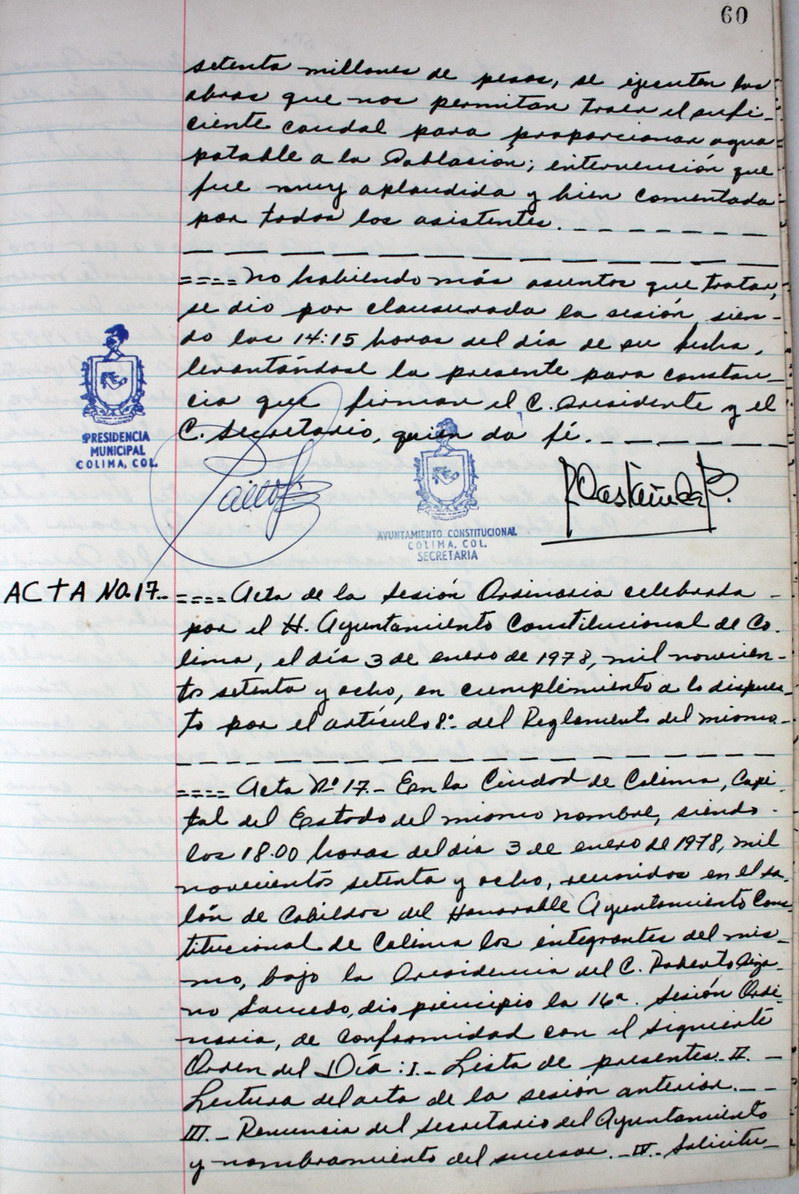 60
setenta millones de pesos, se ejecuten las
obras que nos permitan traer el sufi-
ciente caudal para proporcionar agua
potable a la Población; intervención que
fue muy aplaudida y bien comentada
por todos los asistentes.
==== No habiendo más asuntos que tratar,
se dio por clausurada la sesión sien-
do las 14:15 horas del día de su fecha,
levantándose la presente para constan-
cia que firman el C. Presidente y el
C. Secretario, quien da fé.
PRESIDENCIA
MUNICIPAL
COLIMA, COL.
AYUNTAMIENTO CONSTITUCIONAL
COLIMA, COL.
SECRETARIA
ACTA NO. 17.- ==== Acta de la Sesión Ordinaria celebrada
por el H. Ayuntamiento Constitucional de Co-
lima, el día 3 de enero de 1978, mil novecien-
tos setenta y ocho, en cumplimiento a lo dispues-
to por el artículo 8º del Reglamento del mismo.
==== Acta Nº 17.- En la Ciudad de Colima, Capi-
tal del Estado del mismo nombre, siendo
las 18.00 horas del día 3 de enero de 1978, mil
novecientos setenta y ocho, reunidos en el sa-
lón de Cabildos del Honorable Ayuntamiento Cons-
titucional de Colima los integrantes del mis-
mo, bajo la Presidencia del C. Roberto Piza-
no Saucedo, dio principio la 16a. Sesión Ordi-
naria, de conformidad con el siguiente
Orden del Día: I.- Lista de presentes. II.-
Lectura del acta de la sesión anterior.-
III.- Renuncia del secretario del Ayuntamiento
y nombramiento del sucesor.- IV.- Solicitu-